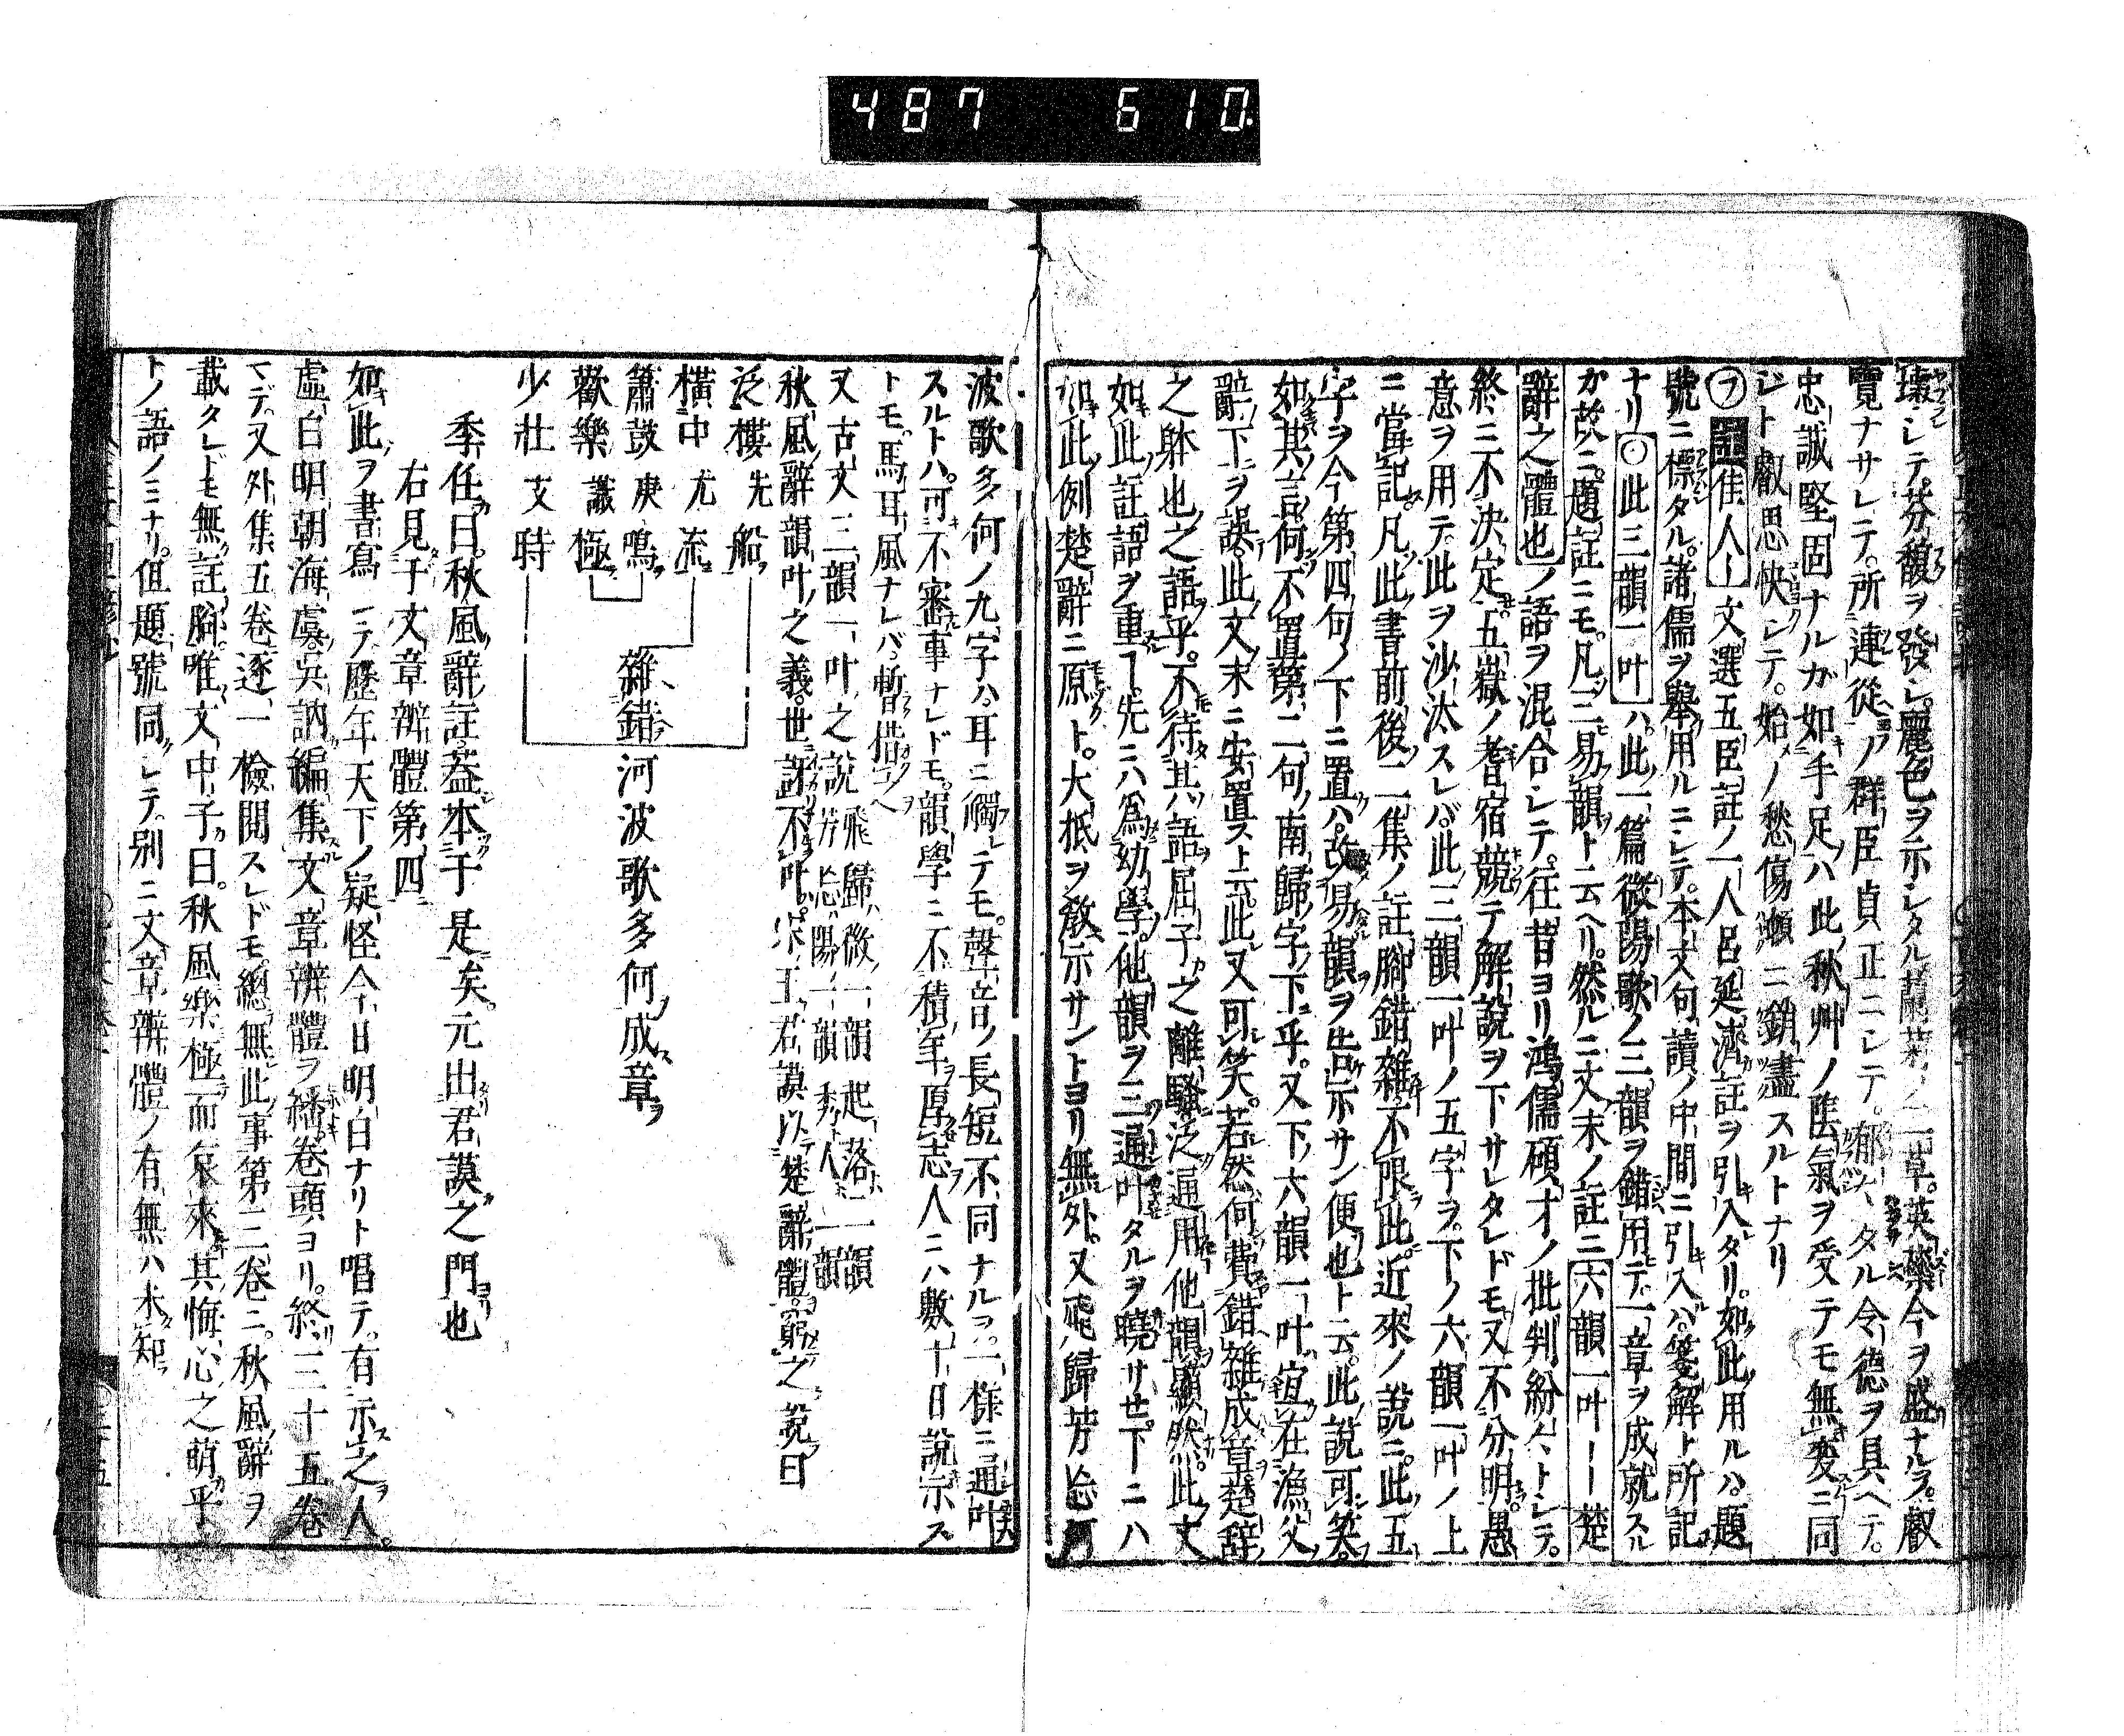 487 610
壊シテ芬馥ヲ發シ。麗色ヲ示シタル蘭菊ノ二草。英藥今ヲ盛ナルヲ。叡
覽ナサレテ。所連從ノ群臣貞正ニシテ。郁々タル令德ヲ具ヘテ。
忠誠堅固ナルガ如手足ハ此秋艸ノ陰氣ヲ受テモ無変ニ同
ジト叡思快シテ。始ノ愁傷頓ニ銷盡スルトナリ
佳人ー 文選五臣註ノ一人呂延濟註ヲ引入タリ。如此用ルハ。題
號ニ標タル。諸儒ヲ舉用ルニシテ。本文句讀ノ中間ニ引入ハ。箋解ト所記
ナリ〇此三韻一叶ハ。此一篇微陽歌ノ三韻ヲ錯用テ。一章ヲ成就スル
カ故ニ。題註ニモ。凡三易韻ト云ヘリ。然ルニ文末ノ註ニ六韻一叶ーー楚
辭之體也ノ語ヲ混合シテ。往昔ヨリ鴻儒碩才ノ批判紛々トシテ。
終ニ不決定。五嶽ノ耆宿競テ解說ヲ下サレタレドモ。又不分明。愚
意ヲ用テ。此ヲ沙汰スレバ。此三韻一叶ノ五字ヲ。下ノ六韻一叶ノ上
ニ當記。凡此書前後二集ノ註脚錯雜不限此。近來ノ說ニ。此五
字ヲ今第四句ノ下ニ置ハ。改易韻ヲ告示サン便也ト云。此說可笑。
如其言何不置第二句ノ南歸字下乎。又下六韻一叶宜在漁父
辭下ヲ誤。此文末ニ安置スト云。此又可笑。若然何費錯雜成章楚辞
之躰也之語乎。不待其語屈子之離騷泛通用他韻顯然。此文
如此註語ヲ重丁。先ニハ爲幼學。他韻ヲ三通叶タルヲ曉サセ。下ニハ
如此例楚辭ニ原ト。大抵ヲ教示サントヨリ無外。又飛歸芳忘河
波歌多何ノ九字ハ。耳ニ觸レテモ。聲音ノ長短不同ナルヲ。一樣ニ通叶
スルトハ。可不審事ナレドモ。韻學ニ不積年厚志人ニハ數十日說示ス
トモ。馬耳風ナレバ。暫借
又古文三韻一叶之說飛歸ハ微ノ一韻起落ト一韻
芳忘ハ陽ノ一韻秀ト人ト一韻
秋風辭韻叶之義。世評不叶。宋王君謨以楚辭體。窮之。說曰
泛樓先船
橫中尤流
簫鼓庚鳴
歡樂識極
少壯文時
雜錯河波歌多何成章
季任曰。秋風辭註。蓋本于是矣。元出君謨之門也
右見于文章辨體第四
如此ヲ書寫シテ歷年天下ノ疑怪今日明白ナリト唱テ。有示之人。
虛白明朝海虞。吳訥編集文章辨體ヲ繙。卷頭ヨリ。終三十五卷
マデ。又外集五卷。逐一檢閱スレドモ。總無此事。第三卷ニ。秋風辭ヲ
載タレドモ。無註脚。唯文中子曰。秋風樂極而哀來。其悔心之萌乎
トノ語ノミナリ。但題號同シテ。別ニ文章辨體ノ有無ハ未知